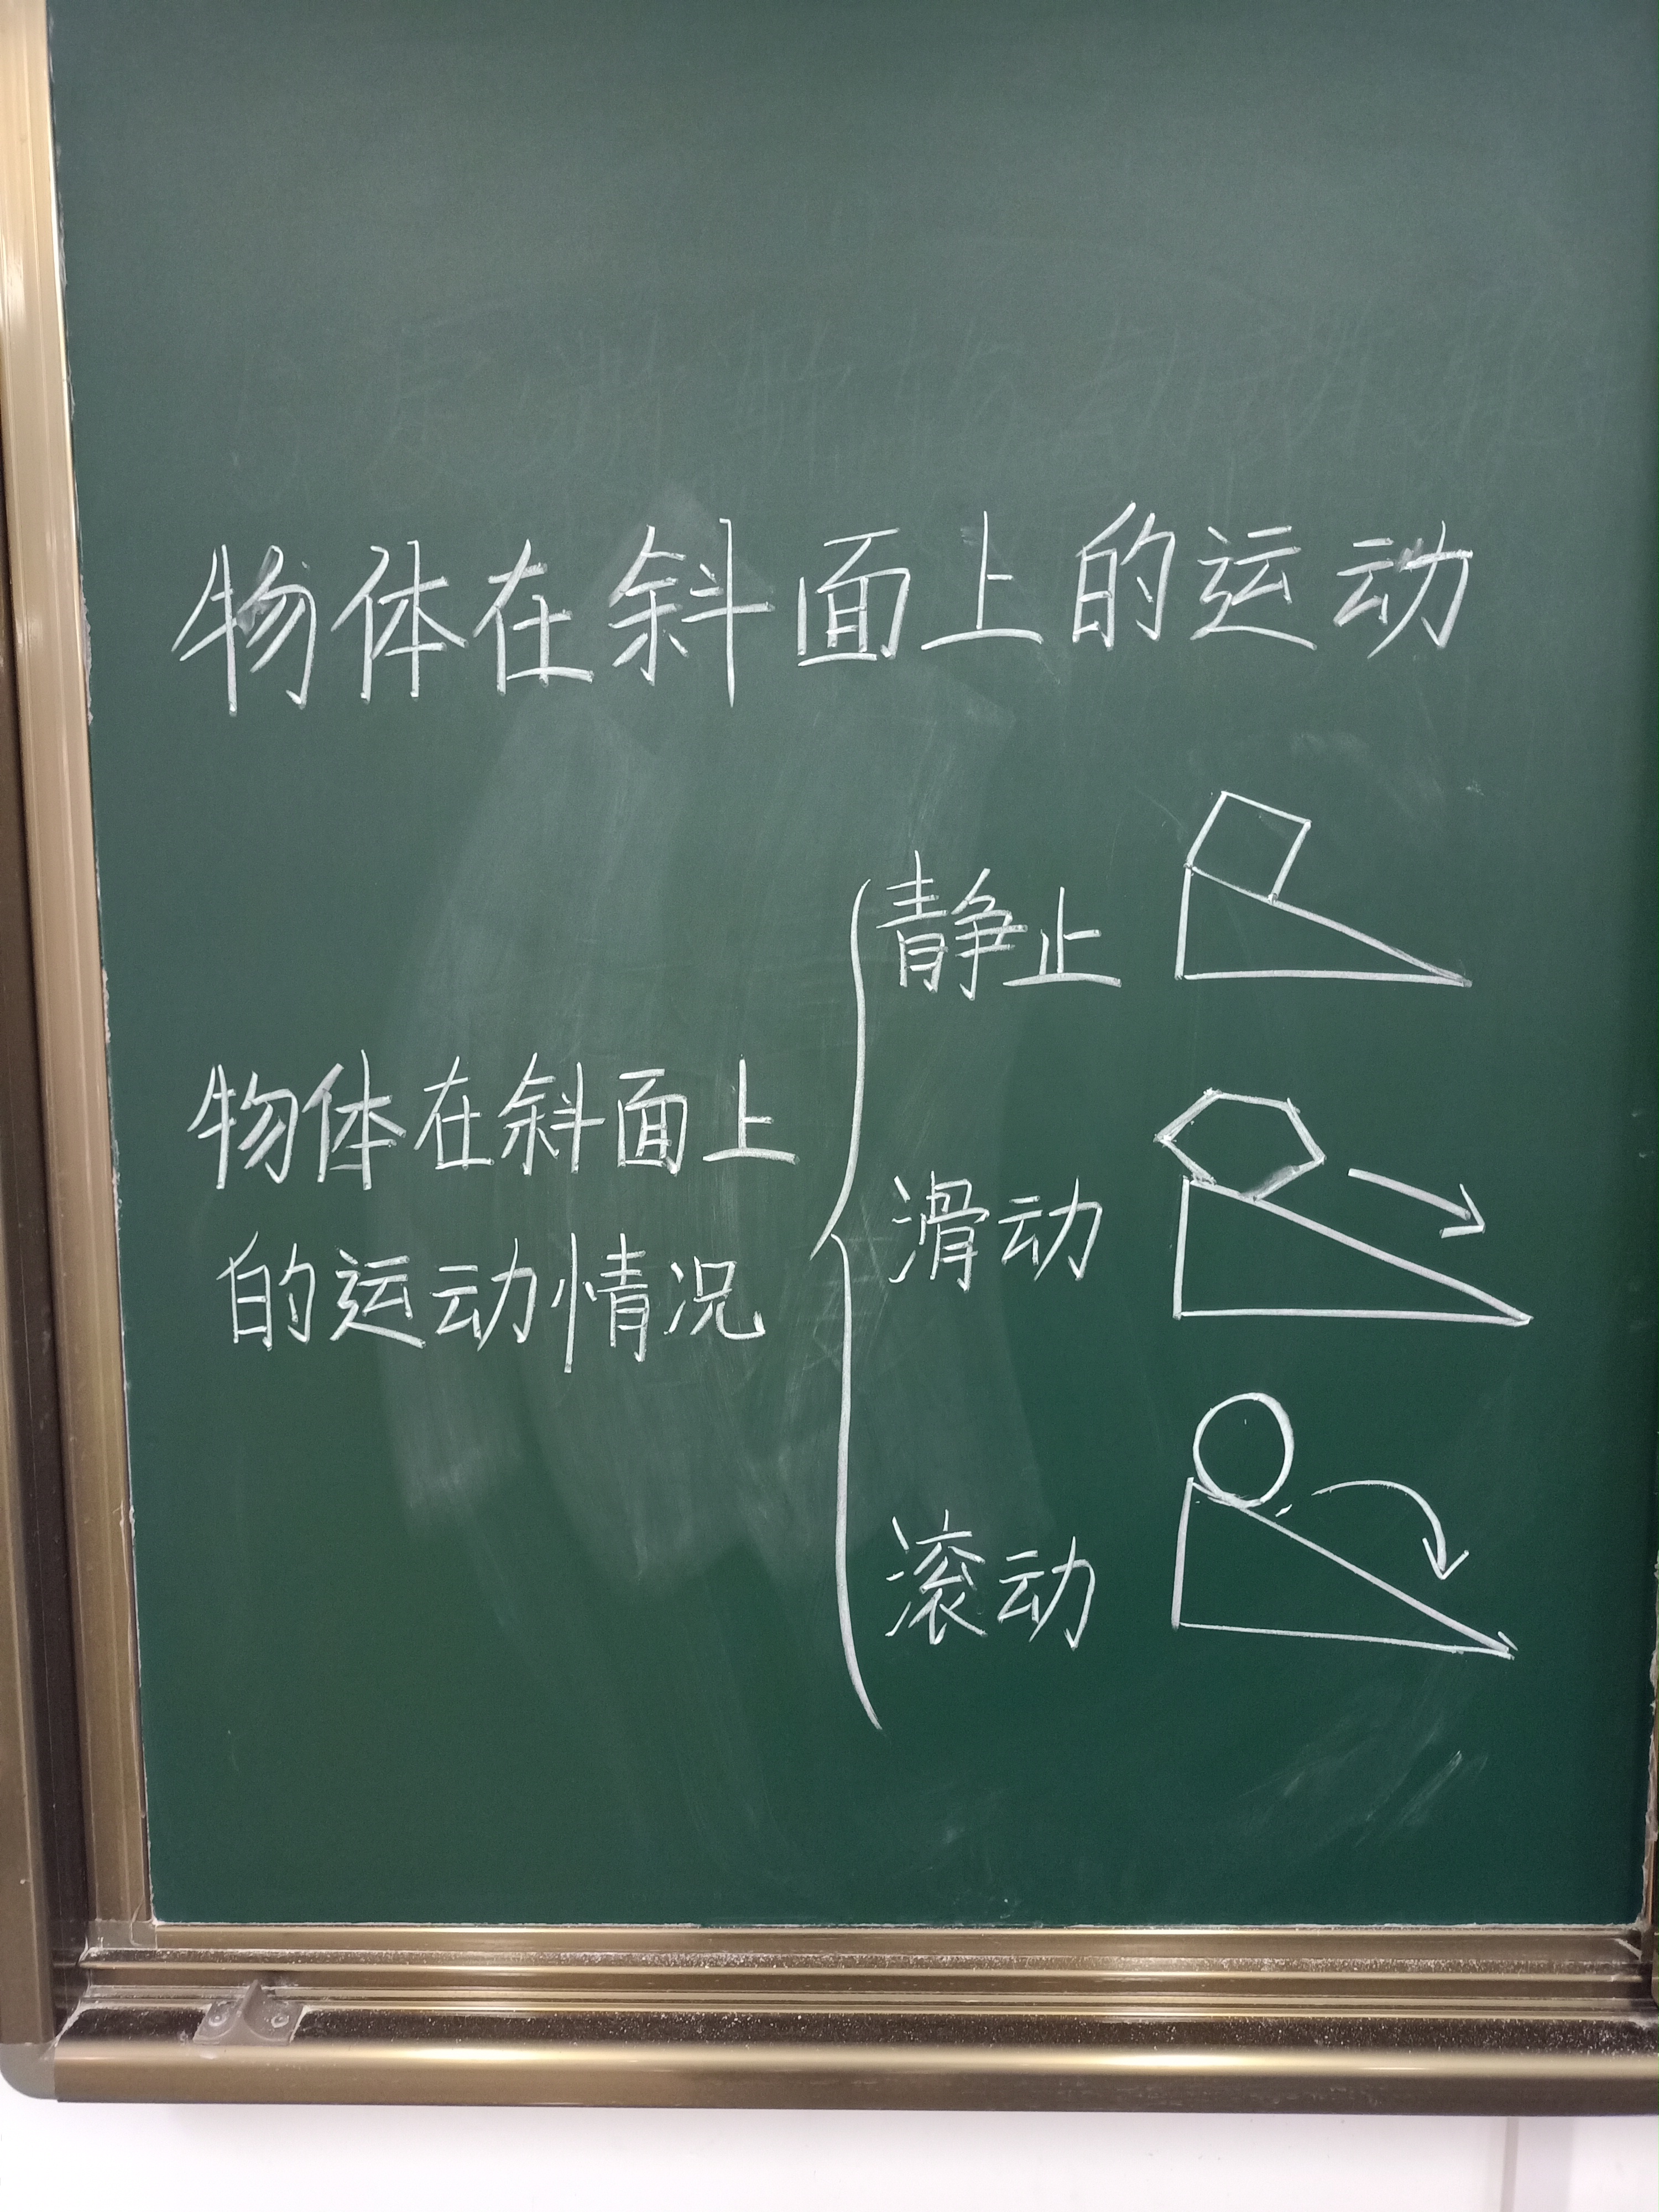 物体在斜面上的运动
物体在斜面上
的运动情况
静止
滑动
滚动